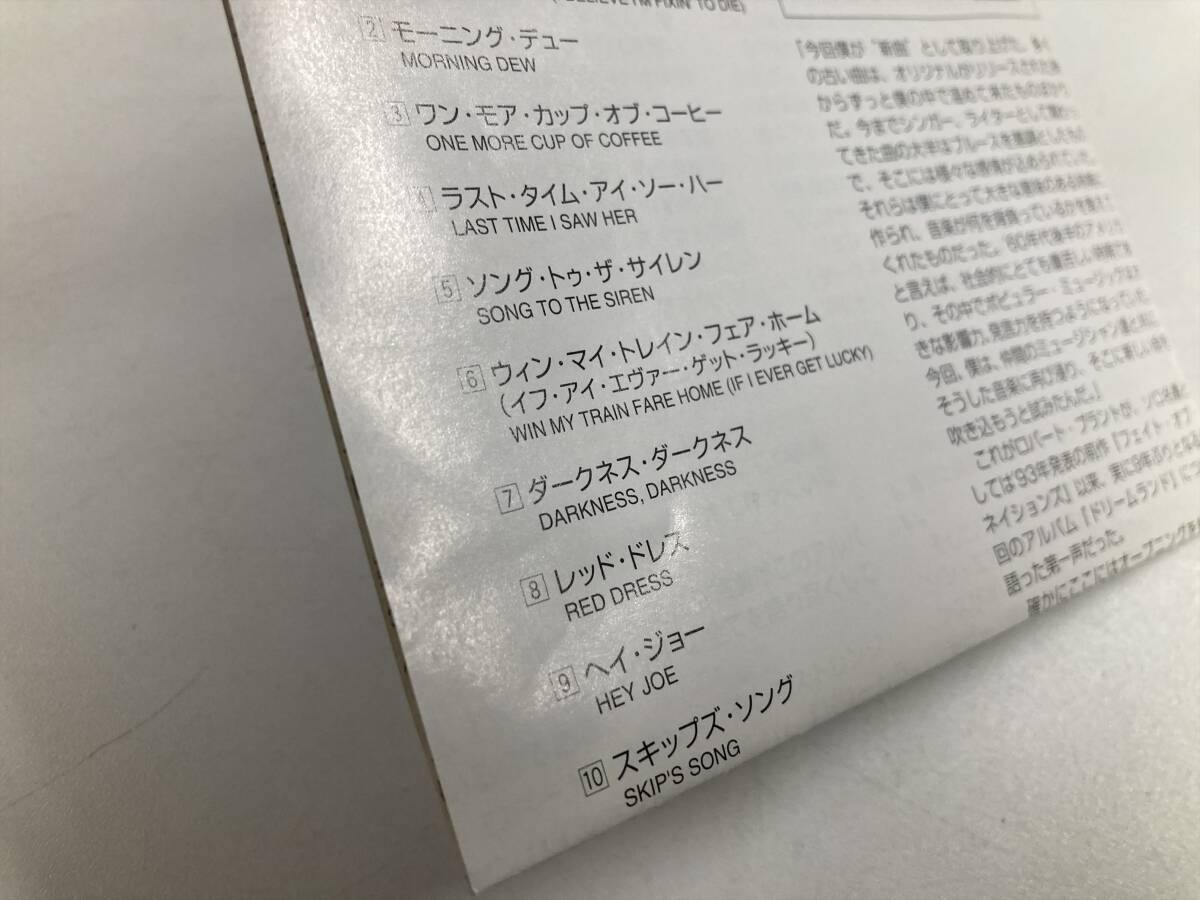 BELIEVE I'M FIXIN' TO DIE)
2 モーニング・デュー
MORNING DEW
3 ワン・モア・カップ・オブ・コーヒー
ONE MORE CUP OF COFFEE
4 ラスト・タイム・アイ・ソー・ハー
LAST TIME I SAW HER
5 ソング・トゥ・ザ・サイレン
SONG TO THE SIREN
6 ウィン・マイ・トレイン・フェア・ホーム
(イフ・アイ・エヴァー・ゲット・ラッキー)
WIN MY TRAIN FARE HOME (IF I EVER GET LUCKY)
7 ダークネス・ダークネス
DARKNESS, DARKNESS
8 レッド・ドレス
RED DRESS
9 ヘイ・ジョー
HEY JOE
10 スキップズ・ソング
SKIP'S SONG
「今回僕が“新曲”として取り上げた、多く
の古い曲は、オリジナルがリリースされた時
からずっと僕の中で温めて来たものばかり
だ。今までシンガー、ライターとして関わっ
てきた曲の大半はブルースを基調としたもの
で、そこには様々な感情が込められていた。
それらは僕にとって大きな意味のある時期に
作られ、音楽が何を背負っているかを教えて
くれたものだった。'60年代後半のアメリカ
と言えば、社会的にとても重苦しい時期であ
り、その中でポピュラー・ミュージックは大
きな影響力、発言力を持つようになっていた。
今回、僕は、仲間のミュージシャン達と共に
そうした音楽に再び浸り、そこに新しい命を
吹き込もうと試みたんだ。」
これがロバート・プラントが、ソロ名義と
しては'93年発表の前作『フェイト・オブ・
ネイションズ』以来、実に9年ぶりとなる
回のアルバム『ドリームランド』に
語った第一声だった。
確かにここにはオープニングを